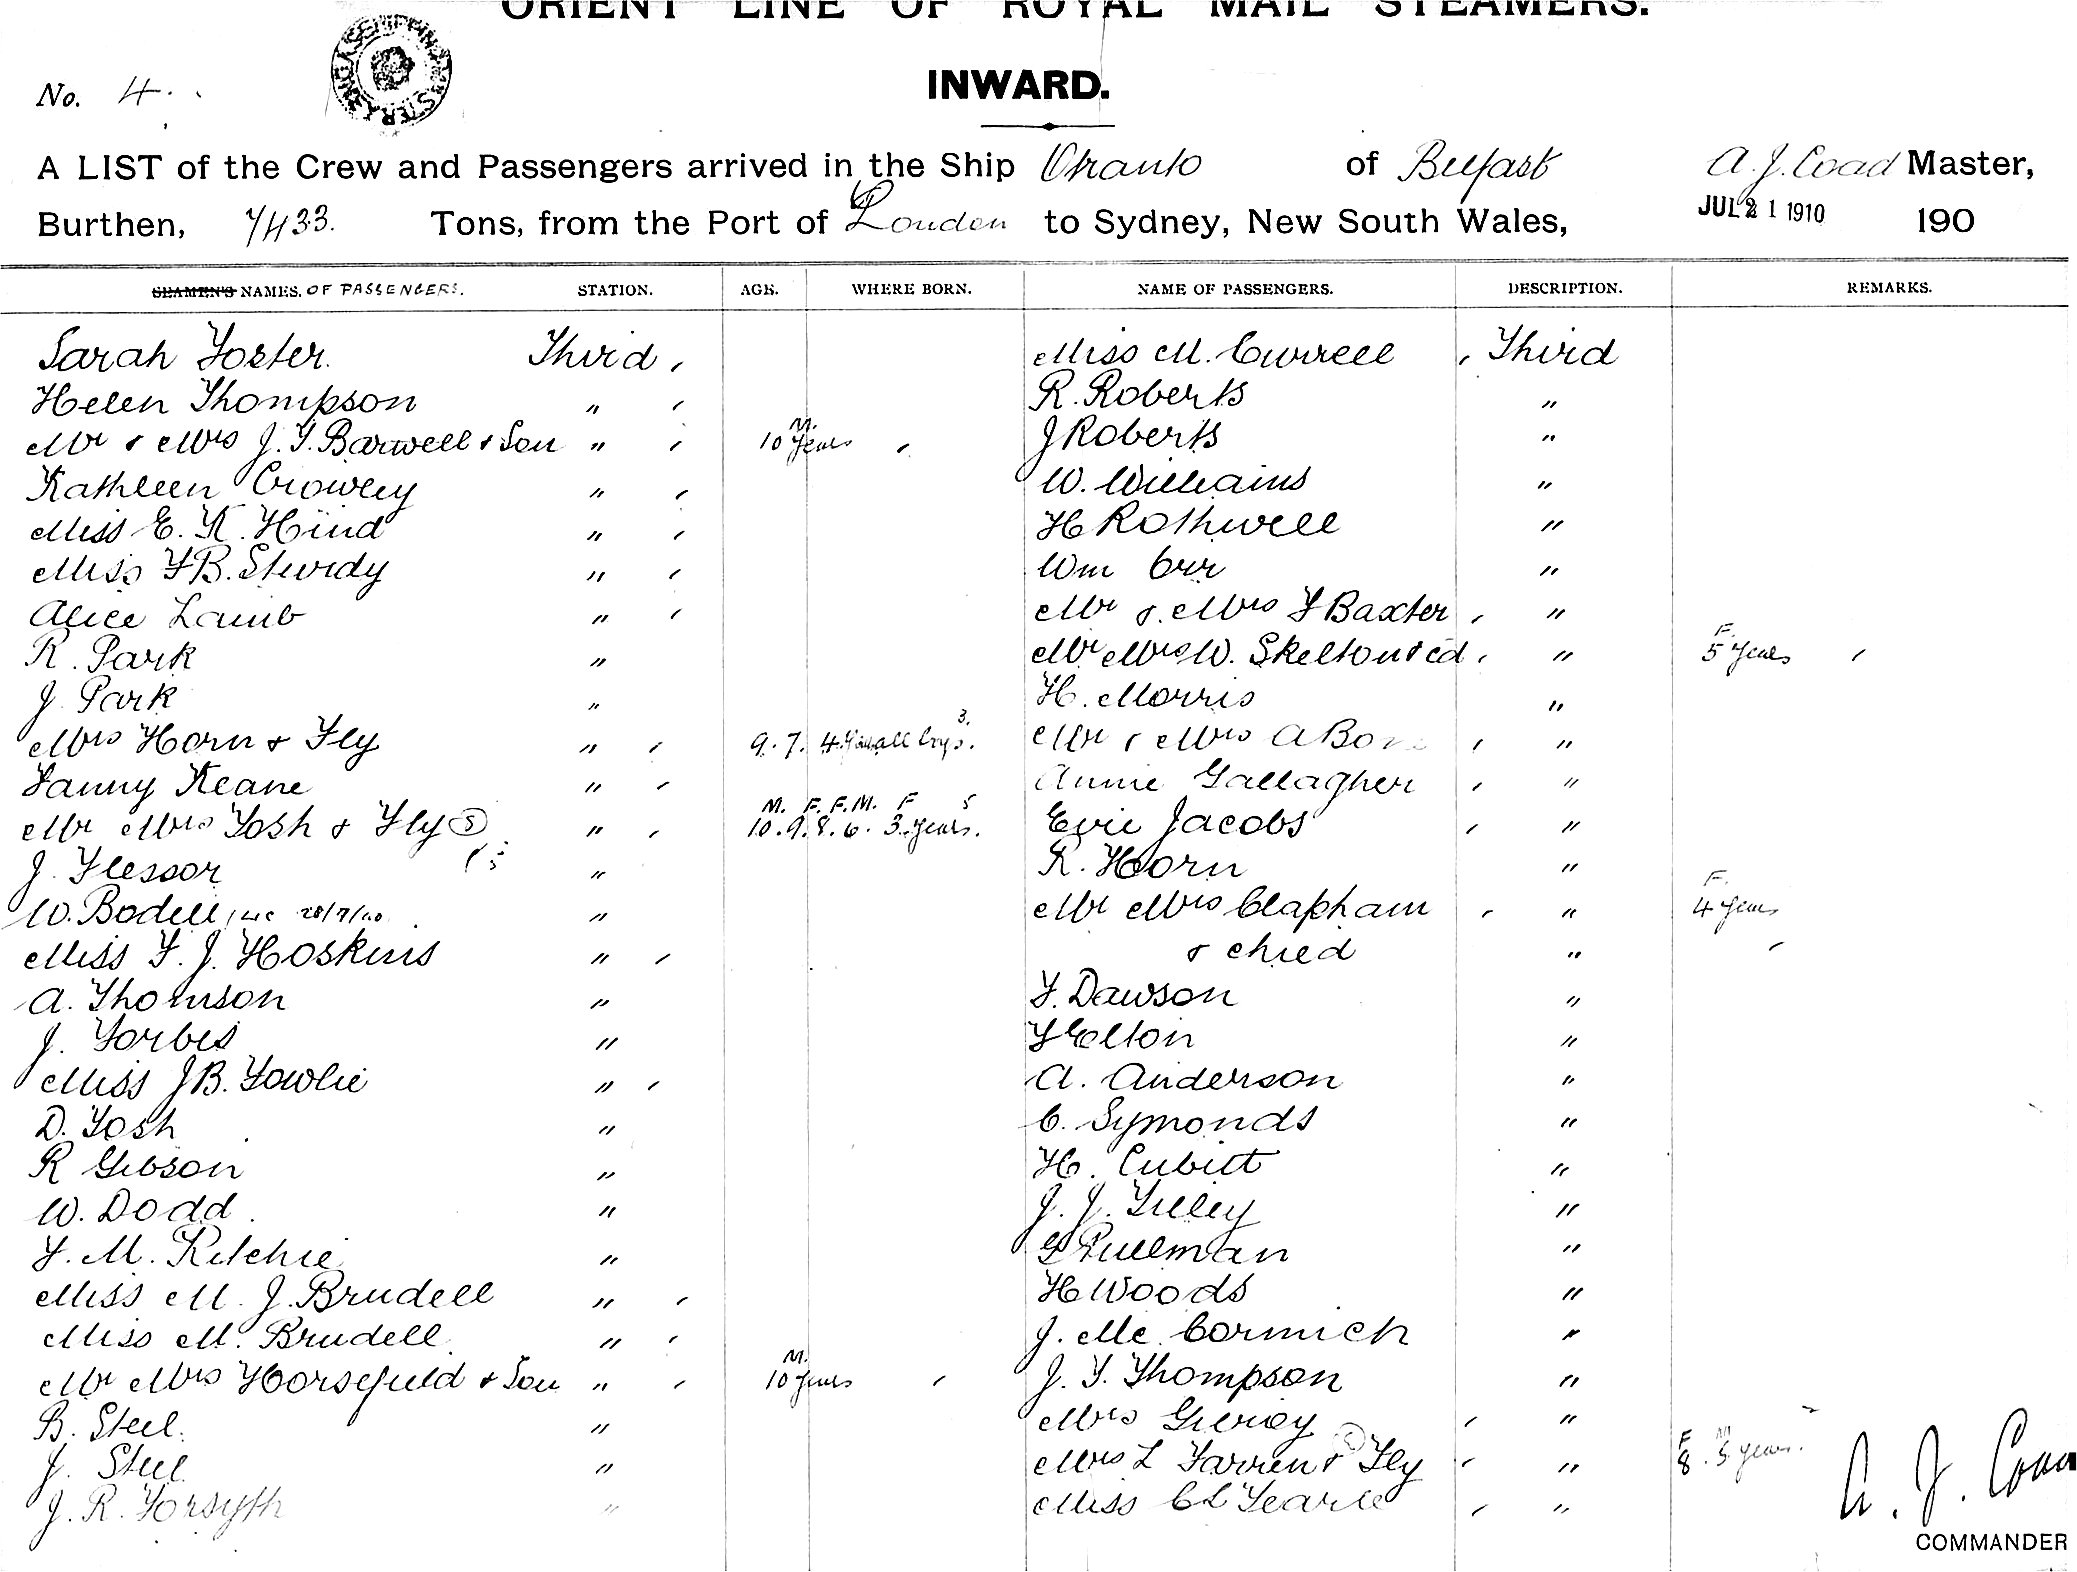 ORIENT LINE OF ROYAL MAIL STEAMERS.
No. 4.
INWARD.
A LIST of the Crew and Passengers arrived in the Ship Otranto of Belfast A. J. Coad Master,
Burthen, 7433. Tons, from the Port of London to Sydney, New South Wales, JUL 21 1910 190
SEAMEN'S NAMES. OF PASSENGERS. STATION. AGE. WHERE BORN. NAME OF PASSENGERS. DESCRIPTION. REMARKS.
Sarah Foster. Third Miss M. Currell Third
Helen Thompson " R. Roberts "
Mr & Mrs J. F. Barwell & Son " M. 10 years J Roberts "
Kathleen Crowley " W. Williams "
Miss E. K. Hind " H Rothwell "
Miss F B. Sturdy " Wm Orr "
Alice Lamb " Mr & Mrs F Baxter "
R. Park " Mr Mrs W. Skelton & cd " F. 5 years
J. Park " H. Morris "
Mrs Horn & Fly " 9. 7. 4 all boys. 3. Mr & Mrs A "
Fanny Keane " Annie Gallagher "
Mr Mrs Tosh & Fly 5 " M. F. F. M. F 5 10. 9. 8. 6. 3 years. Evie Jacobs "
J. Flessor " R. Horn "
W. Bodell 28/7/10 " Mr Mrs Clapham " F. 4 years
Miss F. J. Hoskins " & child "
A. Thomson " F. Dawson "
J. Forbes " F Elton "
Miss J B. Fowlie " A. Anderson "
D. Tosh " C. Symonds "
R Gibson " H. Cubitt "
W. Dodd " J. J. Tilley "
F. M. Ritchie " Pullman "
Miss M. J. Brudell " H Woods "
Miss M. Brudell " J. Mc Cormich "
Mr Mrs Horsefield & Son " M. 10 years J. F. Thompson "
B. Steel. " Mrs "
J. Steel " Mrs L Farren & Fly " F M 8. 5 years.
J. R. Forsyth " Miss C L Searle "
A. J. Coad
COMMANDER